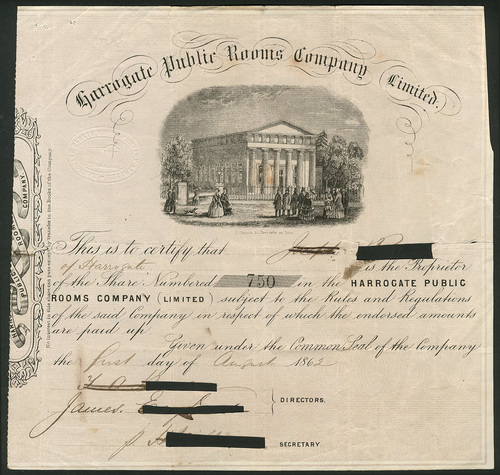 Harrogate Public Rooms Company Limited.
This is to certify that
of Harrogate is the Proprietor
of the Share Numbered 750 in the HARROGATE PUBLIC
ROOMS COMPANY (LIMITED) subject to the Rules and Regulations
of the said Company in respect of which the endorsed amounts
are paid up
Given under the Common Seal of the Company
the first day of August 1862
James.
DIRECTORS.
SECRETARY